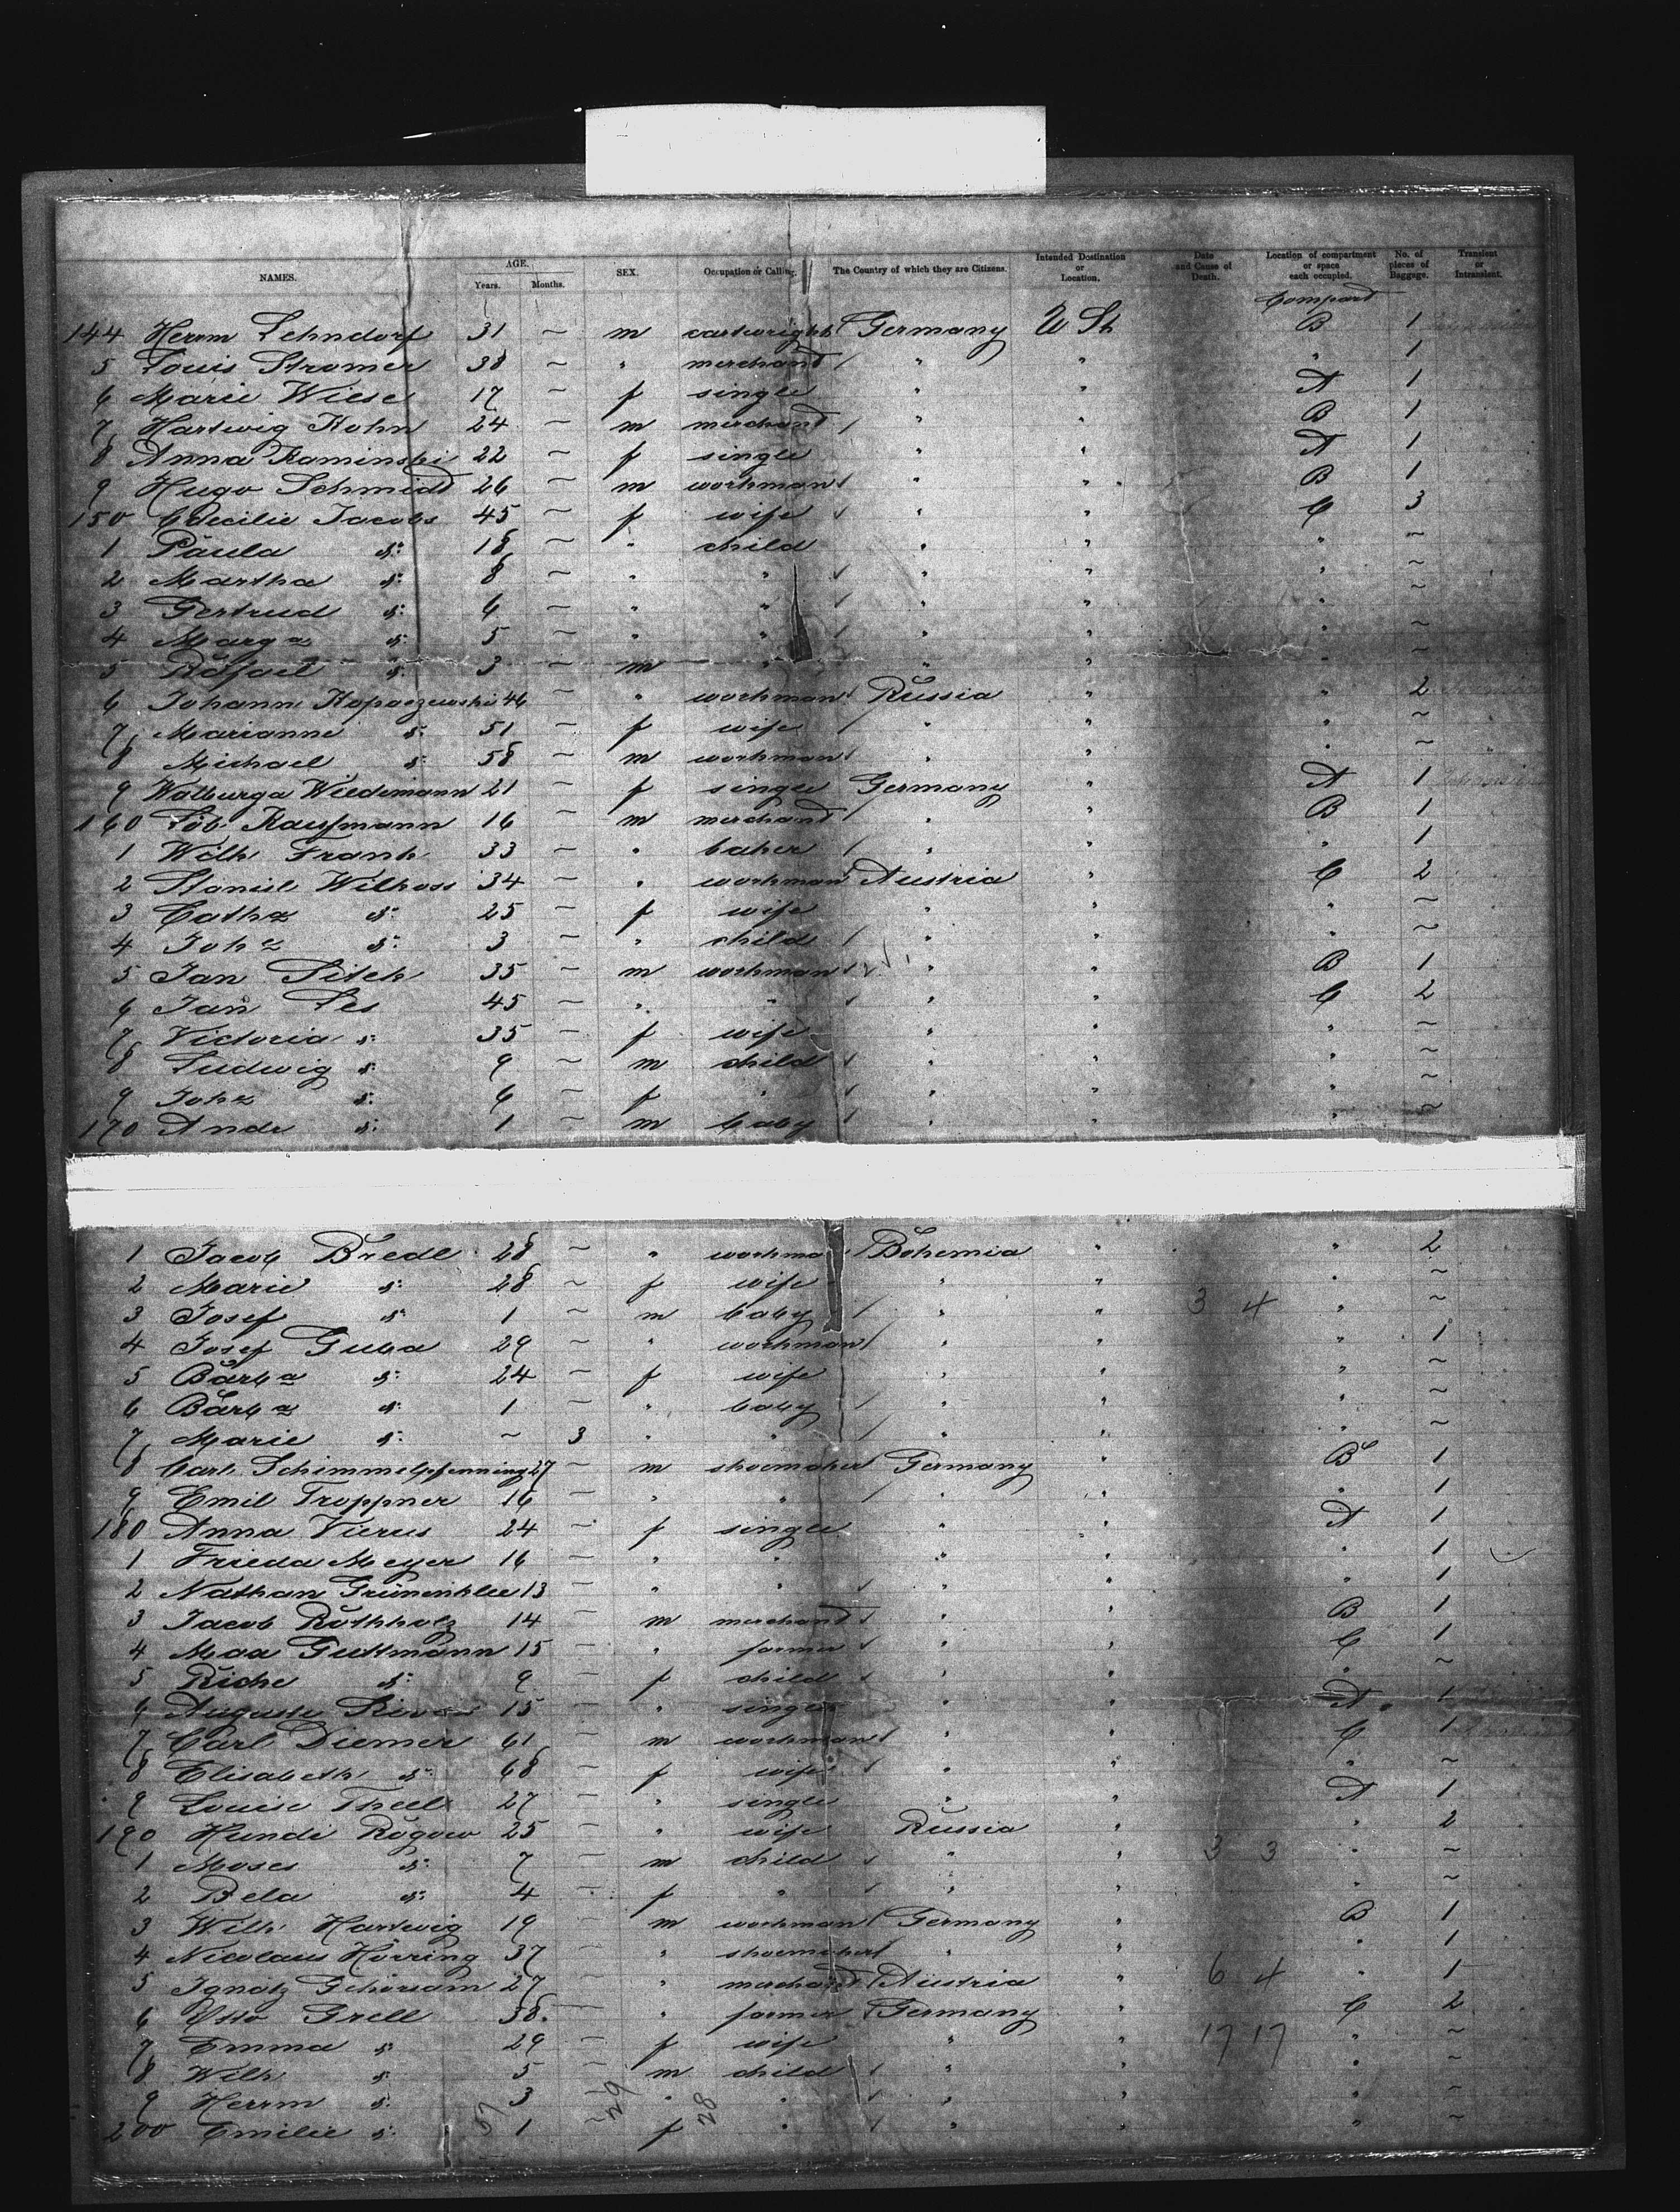 NAMES. AGE. Years. Months. SEX. Occupation or Calling. The Country of which they are Citizens. Intended Destination or Location. Date and Cause of Death. Location of compartment or space each occupied. No. of pieces of Baggage. Transient or Intransient.
Compart
144 Herrm Lehndorf 31 ~ m cartwright Germany U St B 1
5 Louis Stromer 38 ~ " merchand " " " 1
6 Marie Wiese 17 ~ f single " " A 1
7 Hartwig Kohn 24 ~ m merchand " " B 1
8 Anna Kaminski 22 ~ f single " " A 1
9 Hugo Schmidt 26 ~ m workman " " B 1
150 Caecilie Jacobs 45 ~ f wife " " C 3
1 Paula d: 18 ~ " child " " " ~
2 Martha d: 8 ~ " " " " " ~
3 Gertrud d: 6 ~ " " " " " ~
4 Marga d: 5 ~ " " " " " ~
5 Rafael d: 3 ~ m " " " " ~
6 Johann Kopaczewski 46 ~ " workman Russia " " 2
7 Marianne d: 51 ~ f wife " " " ~
8 Michael d: 58 ~ m workman " " " ~
9 Walburga Wiedemann 21 ~ f single Germany " A 1
160 Löb Kaufmann 16 ~ m merchand " " B 1
1 Wilh Frank 33 ~ " baker " " " 1
2 Stanisl Wilkoss 34 ~ " workman Austria " C 2
3 Catha d: 25 ~ f wife " " " ~
4 Joha d: 3 ~ " child " " " ~
5 Jan Sitek 35 ~ m workman " " B 1
6 Jan Les 45 ~ " " " " C 2
7 Victoria d: 35 ~ f wife " " " ~
8 Ludwig d: 9 ~ m child " " " ~
9 Joha d: 6 ~ f " " " " ~
170 Andr d: 1 ~ m baby " " " ~
1 Jacob Bredl 28 ~ " workma Bohemia " " 2
2 Marie d: 28 ~ f wife " " " ~
3 Josef d: 1 ~ m baby " " 3 4 " ~
4 Josef Guba 29 ~ " workman " " " 1
5 Barba d: 24 ~ f wife " " " ~
6 Barba d: 1 ~ " baby " " " ~
7 Marie d: ~ 3 " " " " " ~
8 Carl Schimmelpfenning 27 ~ m shoemaker Germany " B 1
9 Emil Troppner 16 ~ " " " " " 1
180 Anna Vierus 24 ~ f single " " A 1
1 Frieda Meyer 16 ~ " " " " " 1
2 Nathan Grünenklee 13 ~ " " " " " 1
3 Jacob Rothholz 14 ~ m merchand " " B 1
4 Max Guttmann 15 ~ " farmer " " C 1
5 Ricke d: 9 ~ f child " " " ~
6 Auguste 15 ~ " single " " A 1
7 Carl Diemer 61 ~ m workman " " C 1
8 Elisabeth d: 68 ~ f wife " " " ~
9 Louise Theel 27 ~ " single " " A 1
190 Hundi Rogow 25 ~ " wife Russia " " 2
1 Moses d: 7 ~ m child " " 3 3 " ~
2 Bela d: 4 ~ f " " " " ~
3 Wilh Hartwig 19 ~ m workman Germany " B 1
4 Nicolaus Hörring 37 ~ " shoemaker " " " 1
5 Ignatz Gehorsam 27 ~ " merchand Austria " 6 4 " 1
6 Otto Grell 38 ~ " farmer Germany " C 2
7 Emma d: 29 ~ f wife " " 17 17 " ~
8 Wilh d: 5 ~ m child " " " ~
9 Herrm d: 3 ~ " " " " " ~
200 Emilie d: 1 ~ f " " " " ~
57 29 28